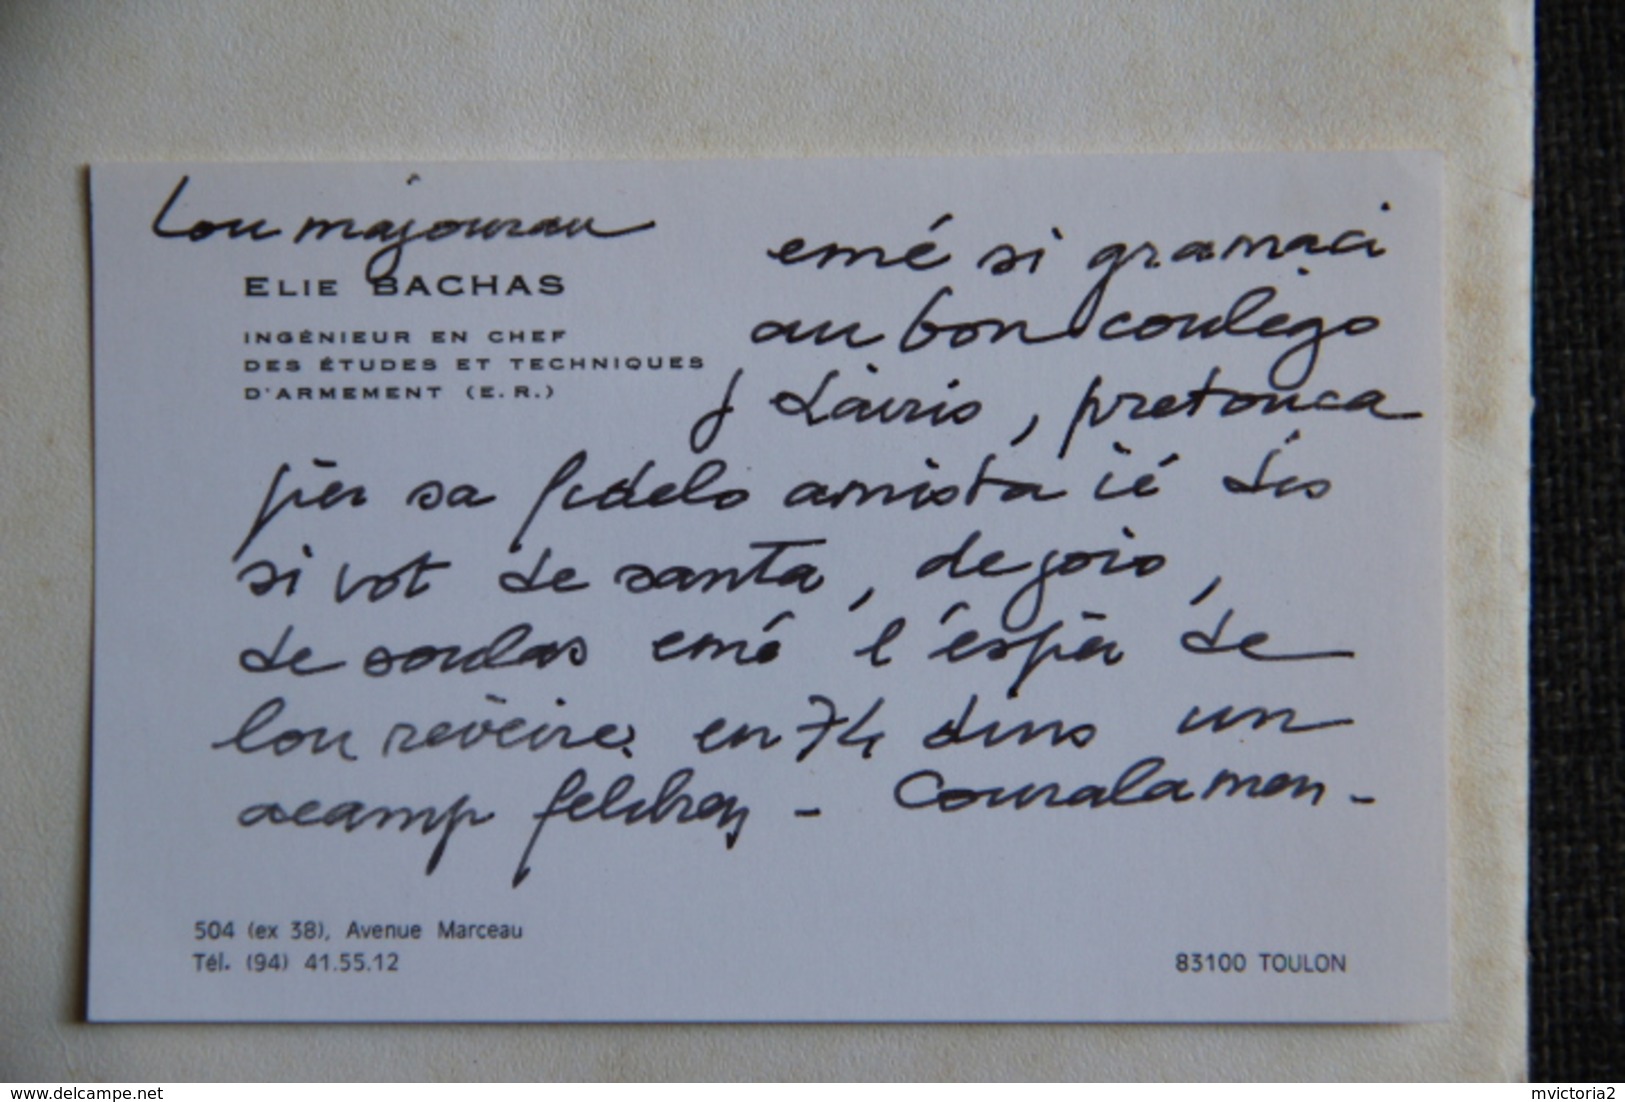 Lou majourau
ELIE BACHAS
INGÉNIEUR EN CHEF
DES ÉTUDES ET TECHNIQUES
D'ARMEMENT (E.R.)
emé si gramaci
au bon coulègo
J Làuris, pretouca
pèr sa fidelo amista ié dis
si vot de santa, de joio,
de soulas emé l'espèr de
lou rèvèire en 74 dins un
acamp felibren - Couralamen -
504 (ex 38), Avenue Marceau
Tél. (94) 41.55.12
83100 TOULON
delcampe.net
mvictoria2